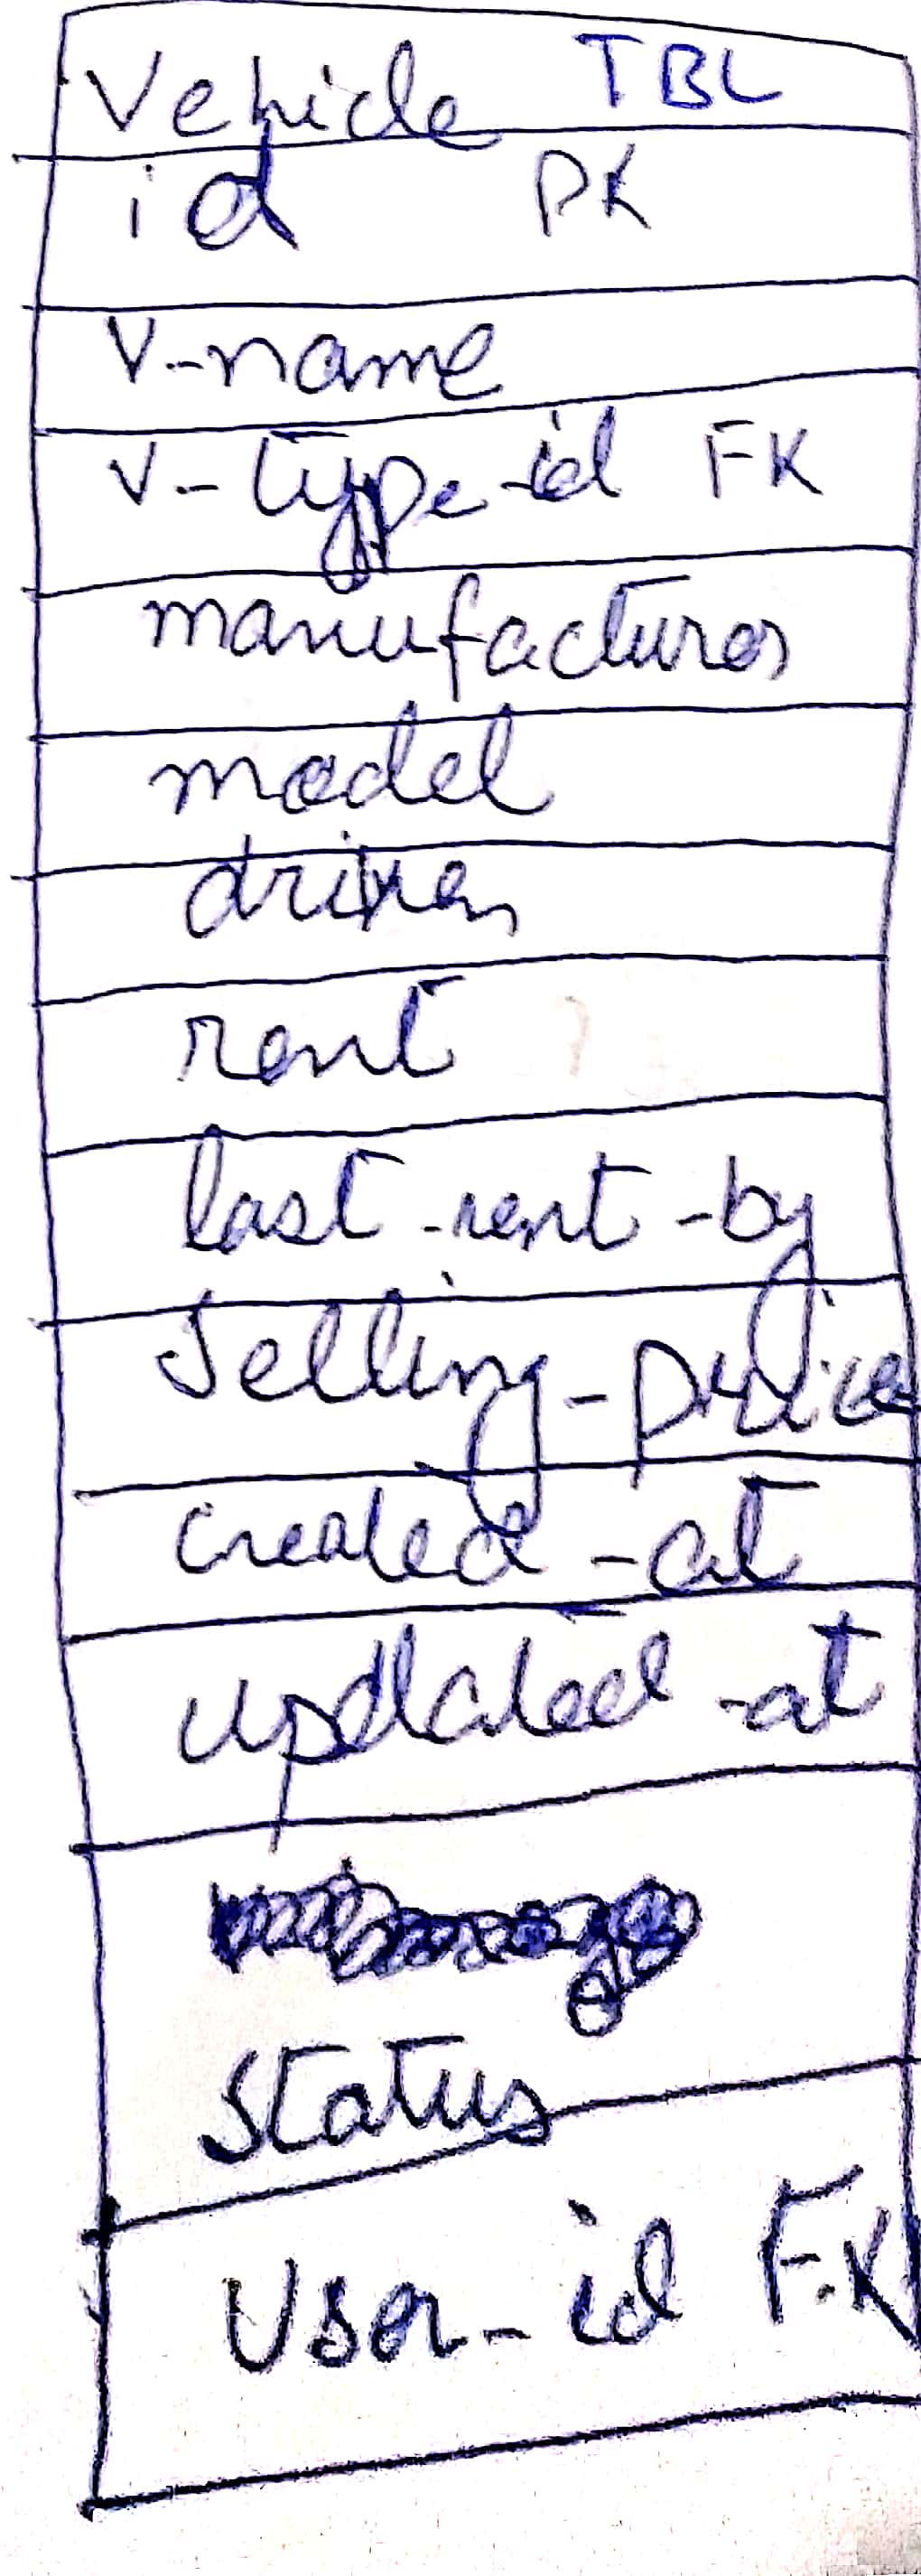 Vehicle TBL
id PK
V-name
V-type-id FK
manufacturer
model
driver
rent
last-rent-by
Selling-price
created-at
updated-at
Status
User-id F.K